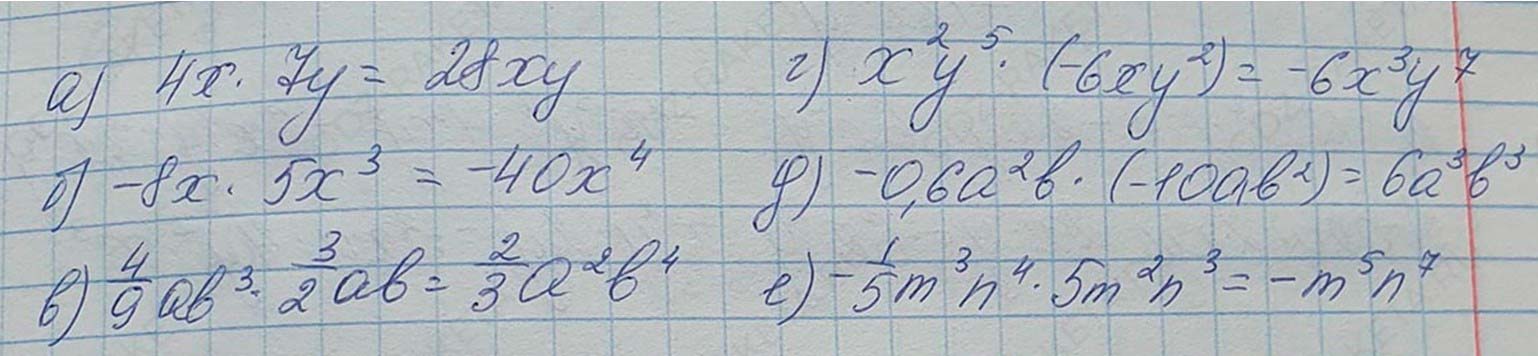 а) 4x · 7y = 28xy
б) -8x · 5x³ = -40x⁴
в) 4/9 ab³ · 3/2 ab = 2/3 a²b⁴
г) x²y⁵ · (-6xy²) = -6x³y⁷
д) -0,6a²b · (-10ab²) = 6a³b³
е) -1/5 m³n⁴ · 5m²n³ = -m⁵n⁷